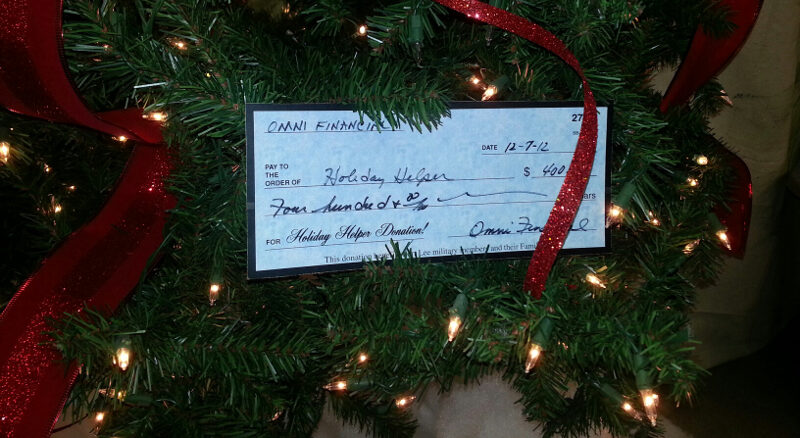 OMNI FINANCIAL
27
DATE 12-7-12
PAY TO
THE
ORDER OF Holiday Helper $ 400
Four hundred & 00/
FOR Holiday Helper Donation! Omni Financial
This donation Lee military members and their